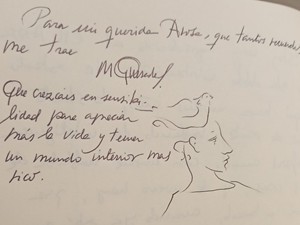 Para mi querida, que tantos recuerdos
me trae
M Quesada
Que crezcais en sensibi-
lidad para apreciar
más la vida y tener
un mundo interior mas
rico.